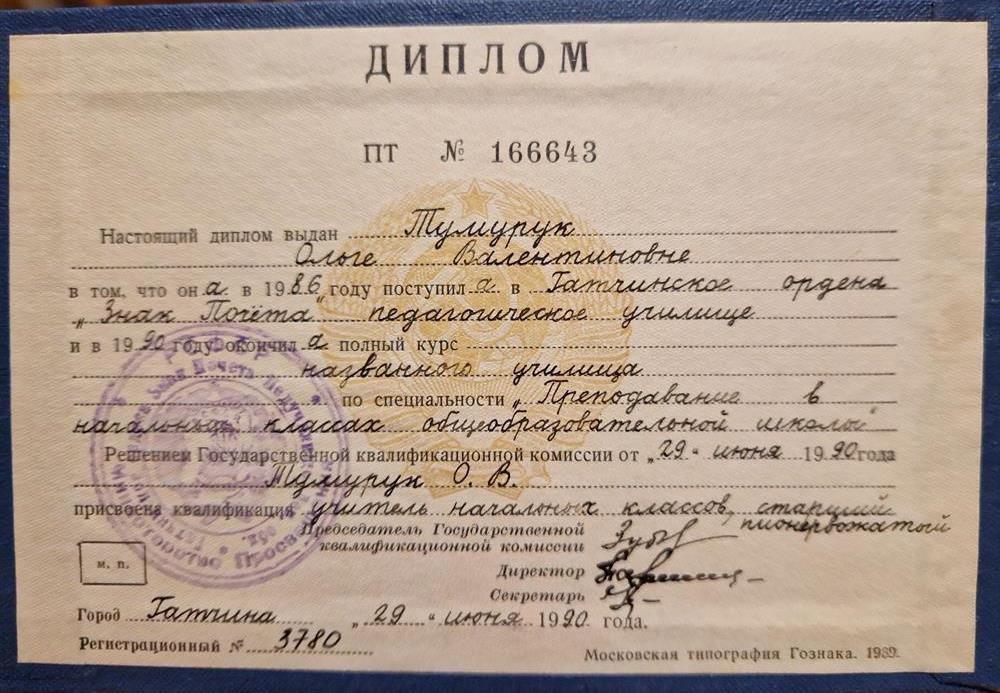 ДИПЛОМ
ПТ № 166643
Настоящий диплом выдан Тумурук
Ольге Валентиновне
в том, что он а в 1986 году поступил а в Гатчинское ордена
„Знак Почёта" педагогическое училище
и в 1990 году окончил а полный курс
названного училища
по специальности „Преподавание в
начальных классах общеобразовательной школы"
Решением Государственной квалификационной комиссии от „29" июня 1990 года
Тумурук О. В.
присвоена квалификация учитель начальных классов, старший
пионервожатый
Председатель Государственной
квалификационной комиссии
Директор
Секретарь
м. п.
Город Гатчина „29" июня 1990 года.
Регистрационный № 3780
Московская типография Гознака. 1989.